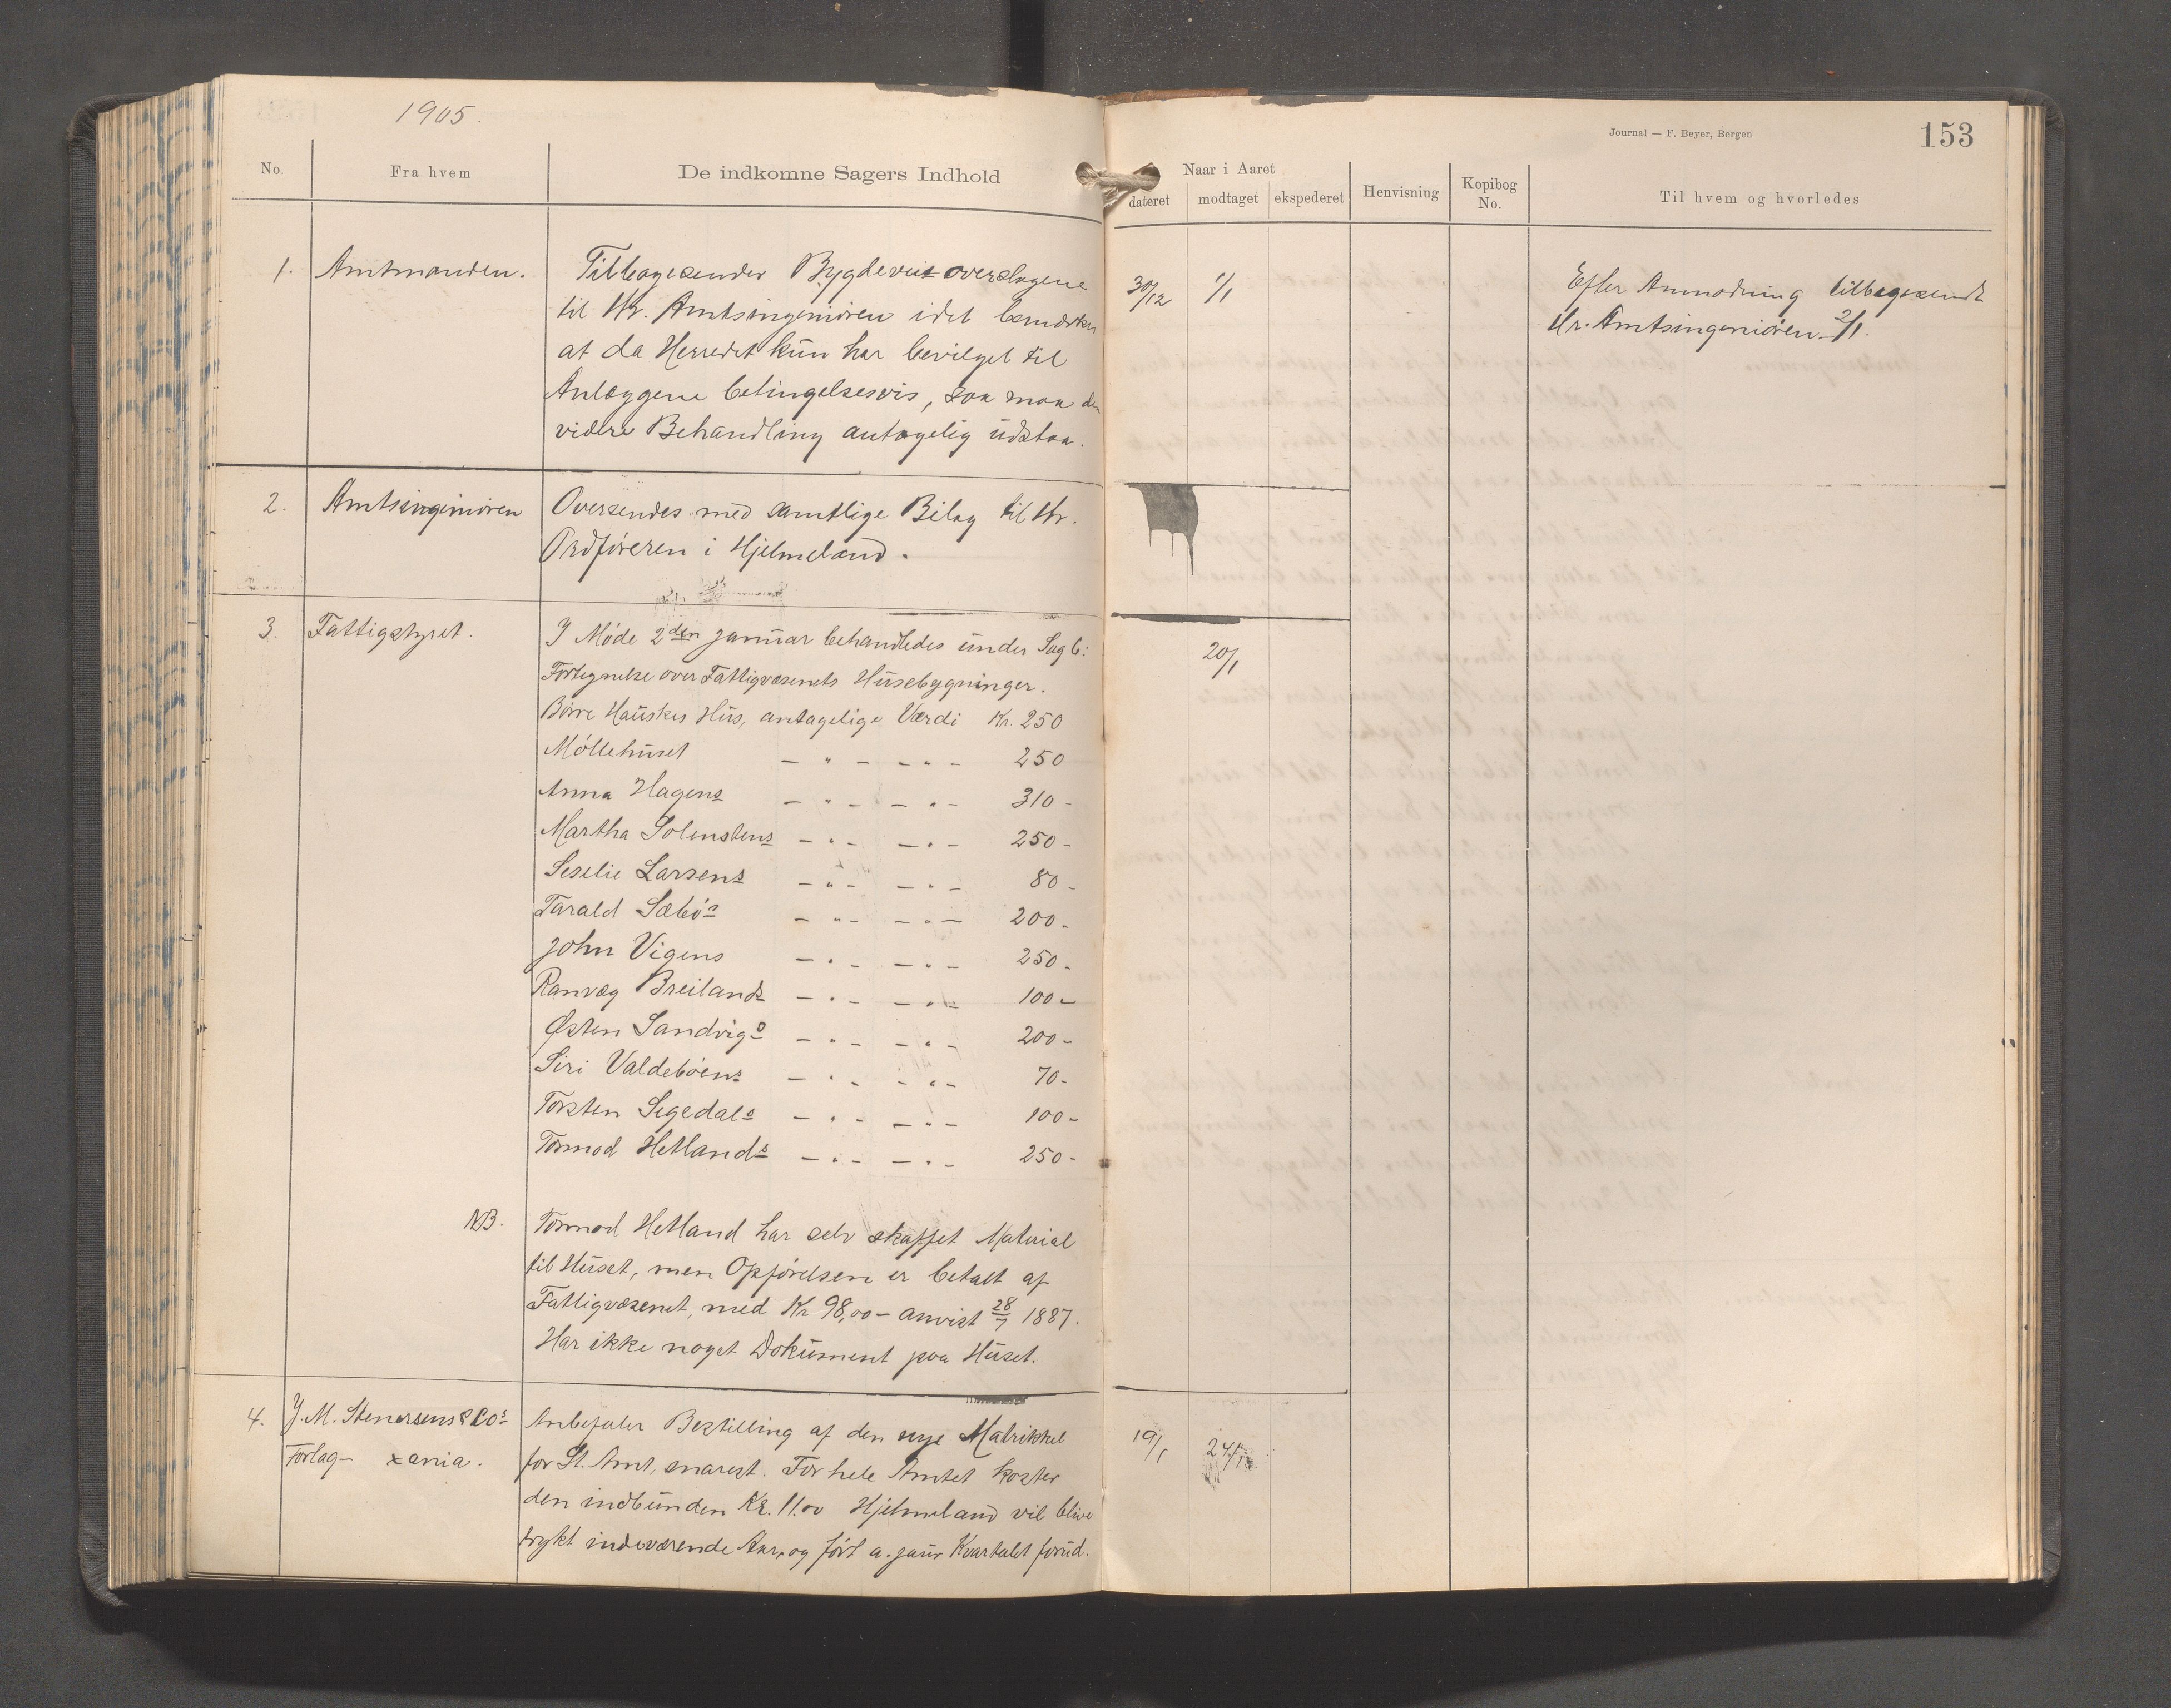 1905.
No.
Fra hvem
De indkomne Sagers Indhold
1.
Amtmanden.
Tilbagesender Bygdeveisoverslagene
til Hr. Amtsingeniören idet bemærkes
at da Herredet kun har bevilget til
Anlæggene betingelsesvis, saa maa den
videre Behandling antagelig udstaa.
2.
Amtsingeniören
Oversendes med samtlige Bilag til Hr.
Ordföreren i Hjelmeland.
3.
Fattigstyret.
I Möde 2den januar behandledes under Sag 6:
Fortegnelse over Fattigvæsenets Husebygninger.
Börre Hauskes Hus, antagelige Værdi Kr. 250
Möllehuset — " — — " — 250
Anna Hagens — " — — " — 310 -
Martha Solenstens — " — — " — 250 -
Seselie Larsens — " — — " — 80 -
Tarald Sæbö's — " — — " — 200 -
John Vigens — " — — " — 250 -
Ranvæg Breilands — " — — " — 100 -
Østen Sandvigs — " — — " — 200 -
Siri Valdeböens — " — — " — 70 -
Torsten Segedals — " — — " — 100 -
Tormod Hetlands — " — — " — 250 -
NB.
Tormod Hetland har selv skaffet Material
til Huset, men Opförelsen er betalt af
Fattigvæsenet, med Kr 98,00 - anvist 28/7 1887.
Har ikke noget Dokument paa Huset.
4.
J. M. Stenersens & Co's
Forlag - xania.
Anbefaler Bestilling af den nye Matrikkel
for St. Amt, snarest. For hele Amtet koster
den indbunden Kr. 11.00 Hjelmeland vil blive
trykt indeværende Aar, og
Journal — F. Beyer, Bergen
153
Naar i Aaret
dateret
modtaget
ekspederet
Henvisning
Kopibog
No.
Til hvem og hvorledes
30/12
1/1
Efter Anmodning tilbagesendt
Hr. Amtsingeniören 2/1.
20/1
19/1